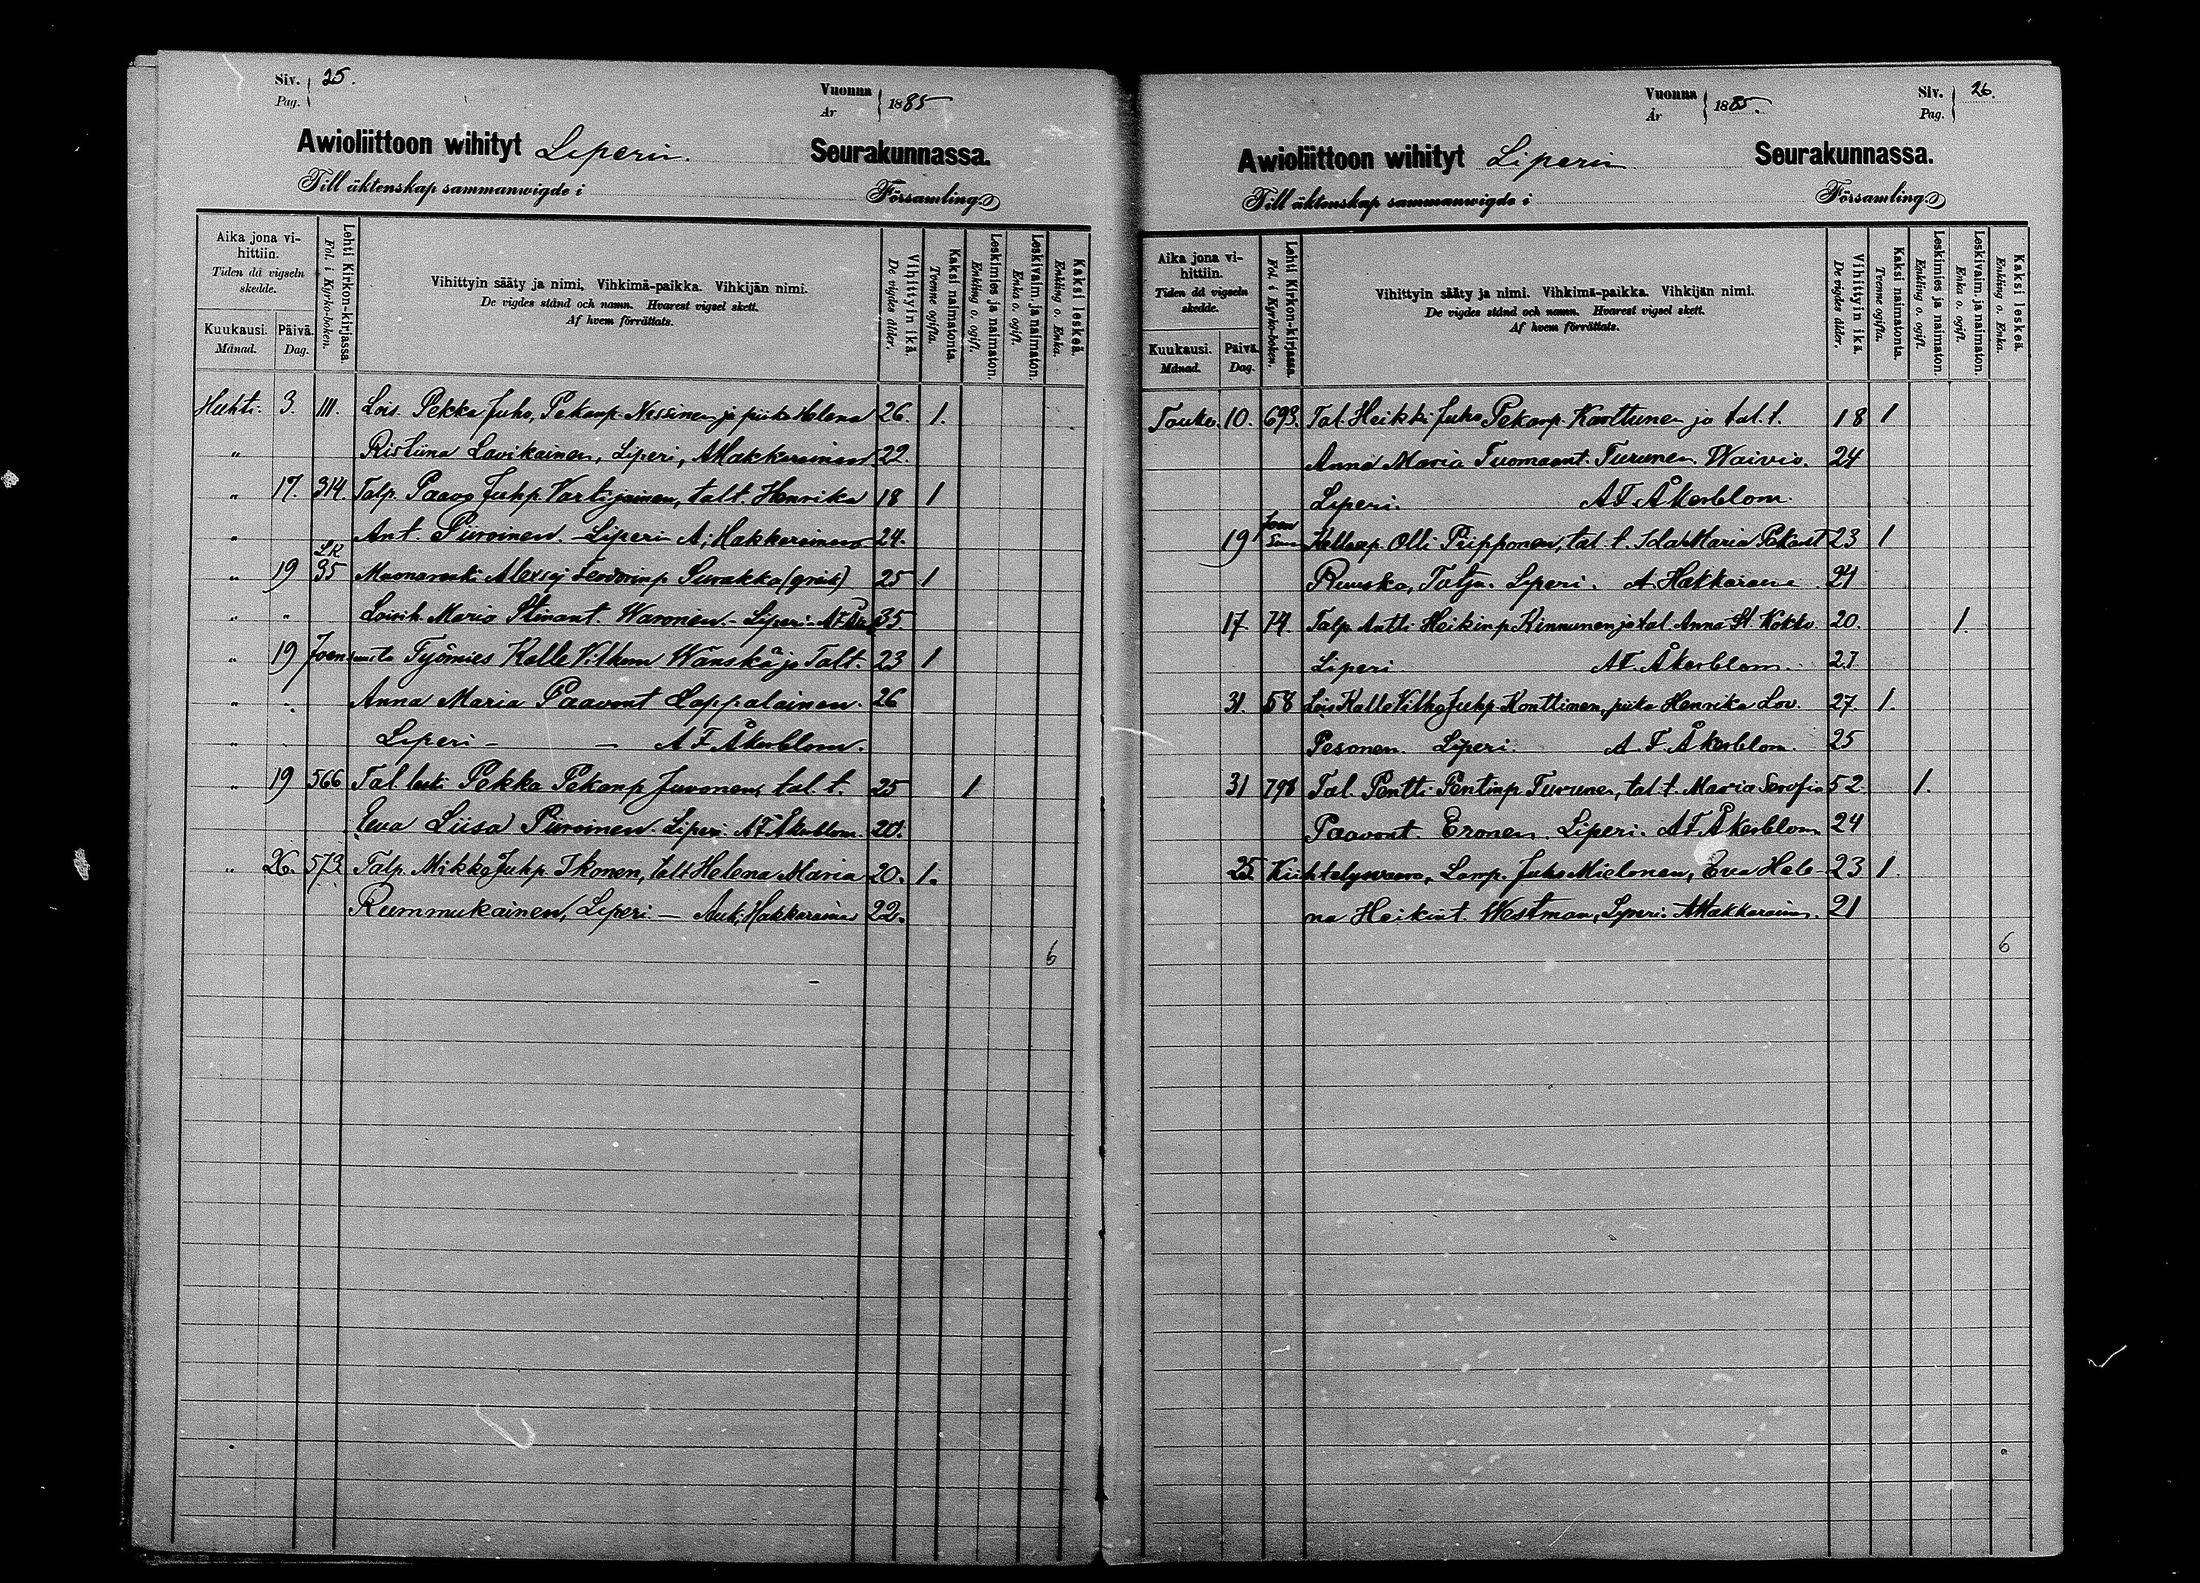 Siv. 25.
Pag.
Vuonna 1885
År
Awioliittoon wihityt Liperin Seurakunnassa.
Till äktenskap sammanwigde i Församling
Aika jona vihittiin.
Tiden då vigseln skedde.
Kuukausi. Månad.
Päivä. Dag.
Lehti Kirkon-kirjassa.
Fol. i Kyrko-boken.
Vihittyin sääty ja nimi, Vihkimä-paikka. Vihkijän nimi.
De vigdes stånd och namn. Hvarest vigsel skett.
Af hvem förrättats.
Vihittyin ikä. De vigdes ålder.
Kaksi naimatonta. Tvenne ogifta.
Leskimies ja naimaton. Enkling o. ogift.
Leskivaim. ja naimaton. Enka o. ogift.
Kaksi leskeä. Enkling o. Enka.
Huhti. 3. 111. Lois. Pekka Juho, Pekanp. Nessinen ja piika Helena 26. 1.
" Ristiina Lavikainen, Liperi, AHakkarainen 22.
" 17. 314. Talp. Paavo Juhp. Vartijainen, talt. Henrika 18 1
" Ant. Piiroinen. Liperi A; Hakkarainen 24.
LK
" 19 35 Alexej Feodorinp Surakka (grek) 25 1
" " Maria Stinant. Waronen - Liperi - 35.
" 19 Joensuusta Työmies Kalle Vilhem Wänskä ja Talt. 23 1
" " Anna Maria Paavont Lappalainen. 26
" " Liperi - - A F Åkerblom.
" 19 566 Tal. leski Pekka Pekanp Juvonen, tal. t. 25 1
Eva Liisa Piiroinen. Liperi. AFÅkerblom. 20.
" 26. 573. Talp. Mikko Juhp. Ikonen, talt Helena Maria 20. 1.
Rummukainen, Liperi - Hakkarainen 22.
6
Vuonna 1885.
År
Siv. 26.
Pag.
Awioliittoon wihityt Liperin Seurakunnassa.
Till äktenskap sammanwigde i Församling
Aika jona vihittiin.
Tiden då vigseln skedde.
Kuukausi. Månad.
Päivä. Dag.
Lehti Kirkon-kirjassa.
Fol. i Kyrko-boken.
Vihittyin sääty ja nimi. Vihkimä-paikka. Vihkijän nimi.
De vigdes stånd och namn. Hvarest vigsel skett.
Af hvem förrättats.
Vihittyin ikä. De vigdes ålder.
Kaksi naimatonta. Tvenne ogifta.
Leskimies ja naimaton. Enkling o. ogift.
Leskivaim. ja naimaton. Enka o. ogift.
Kaksi leskeä. Enkling o. Enka.
Touko. 10. 693. Tal. Heikki Juho Pekanp. Karttunen ja tal. t. 18 1
Anna Maria Tuomaant. Turunen Waivio. 24
Liperi. A F Åkerblom.
19 Joen Suu Olli Piipponen, tal. t. Ida Maria Pekant 23 1
Ruuska, Liperi. A Hakkarainen 21
17. 74. Talp. Antti Heikinp Kinnunen ja tal Anna St. Kokko. 20. 1.
Liperi AF. Åkerblom. 27
31. 58 Lois Kalle Vilho Juhp. Konttinen, piika Henrika Lov. 27. 1.
Pesonen. Liperi. A. F. Åkerblom. 25
31 798 Tal. Pentti Pentinp Turunen, tal. t. Maria Serafia 52. 1.
Paavont. Eronen. Liperi. AFÅkerblom 24
25 Kiihtelyswaara, Lamp. Juho Mielonen, Eva Hele- 23 1.
na Heikint. Westman, Liperi. AHakkarainen. 21
6